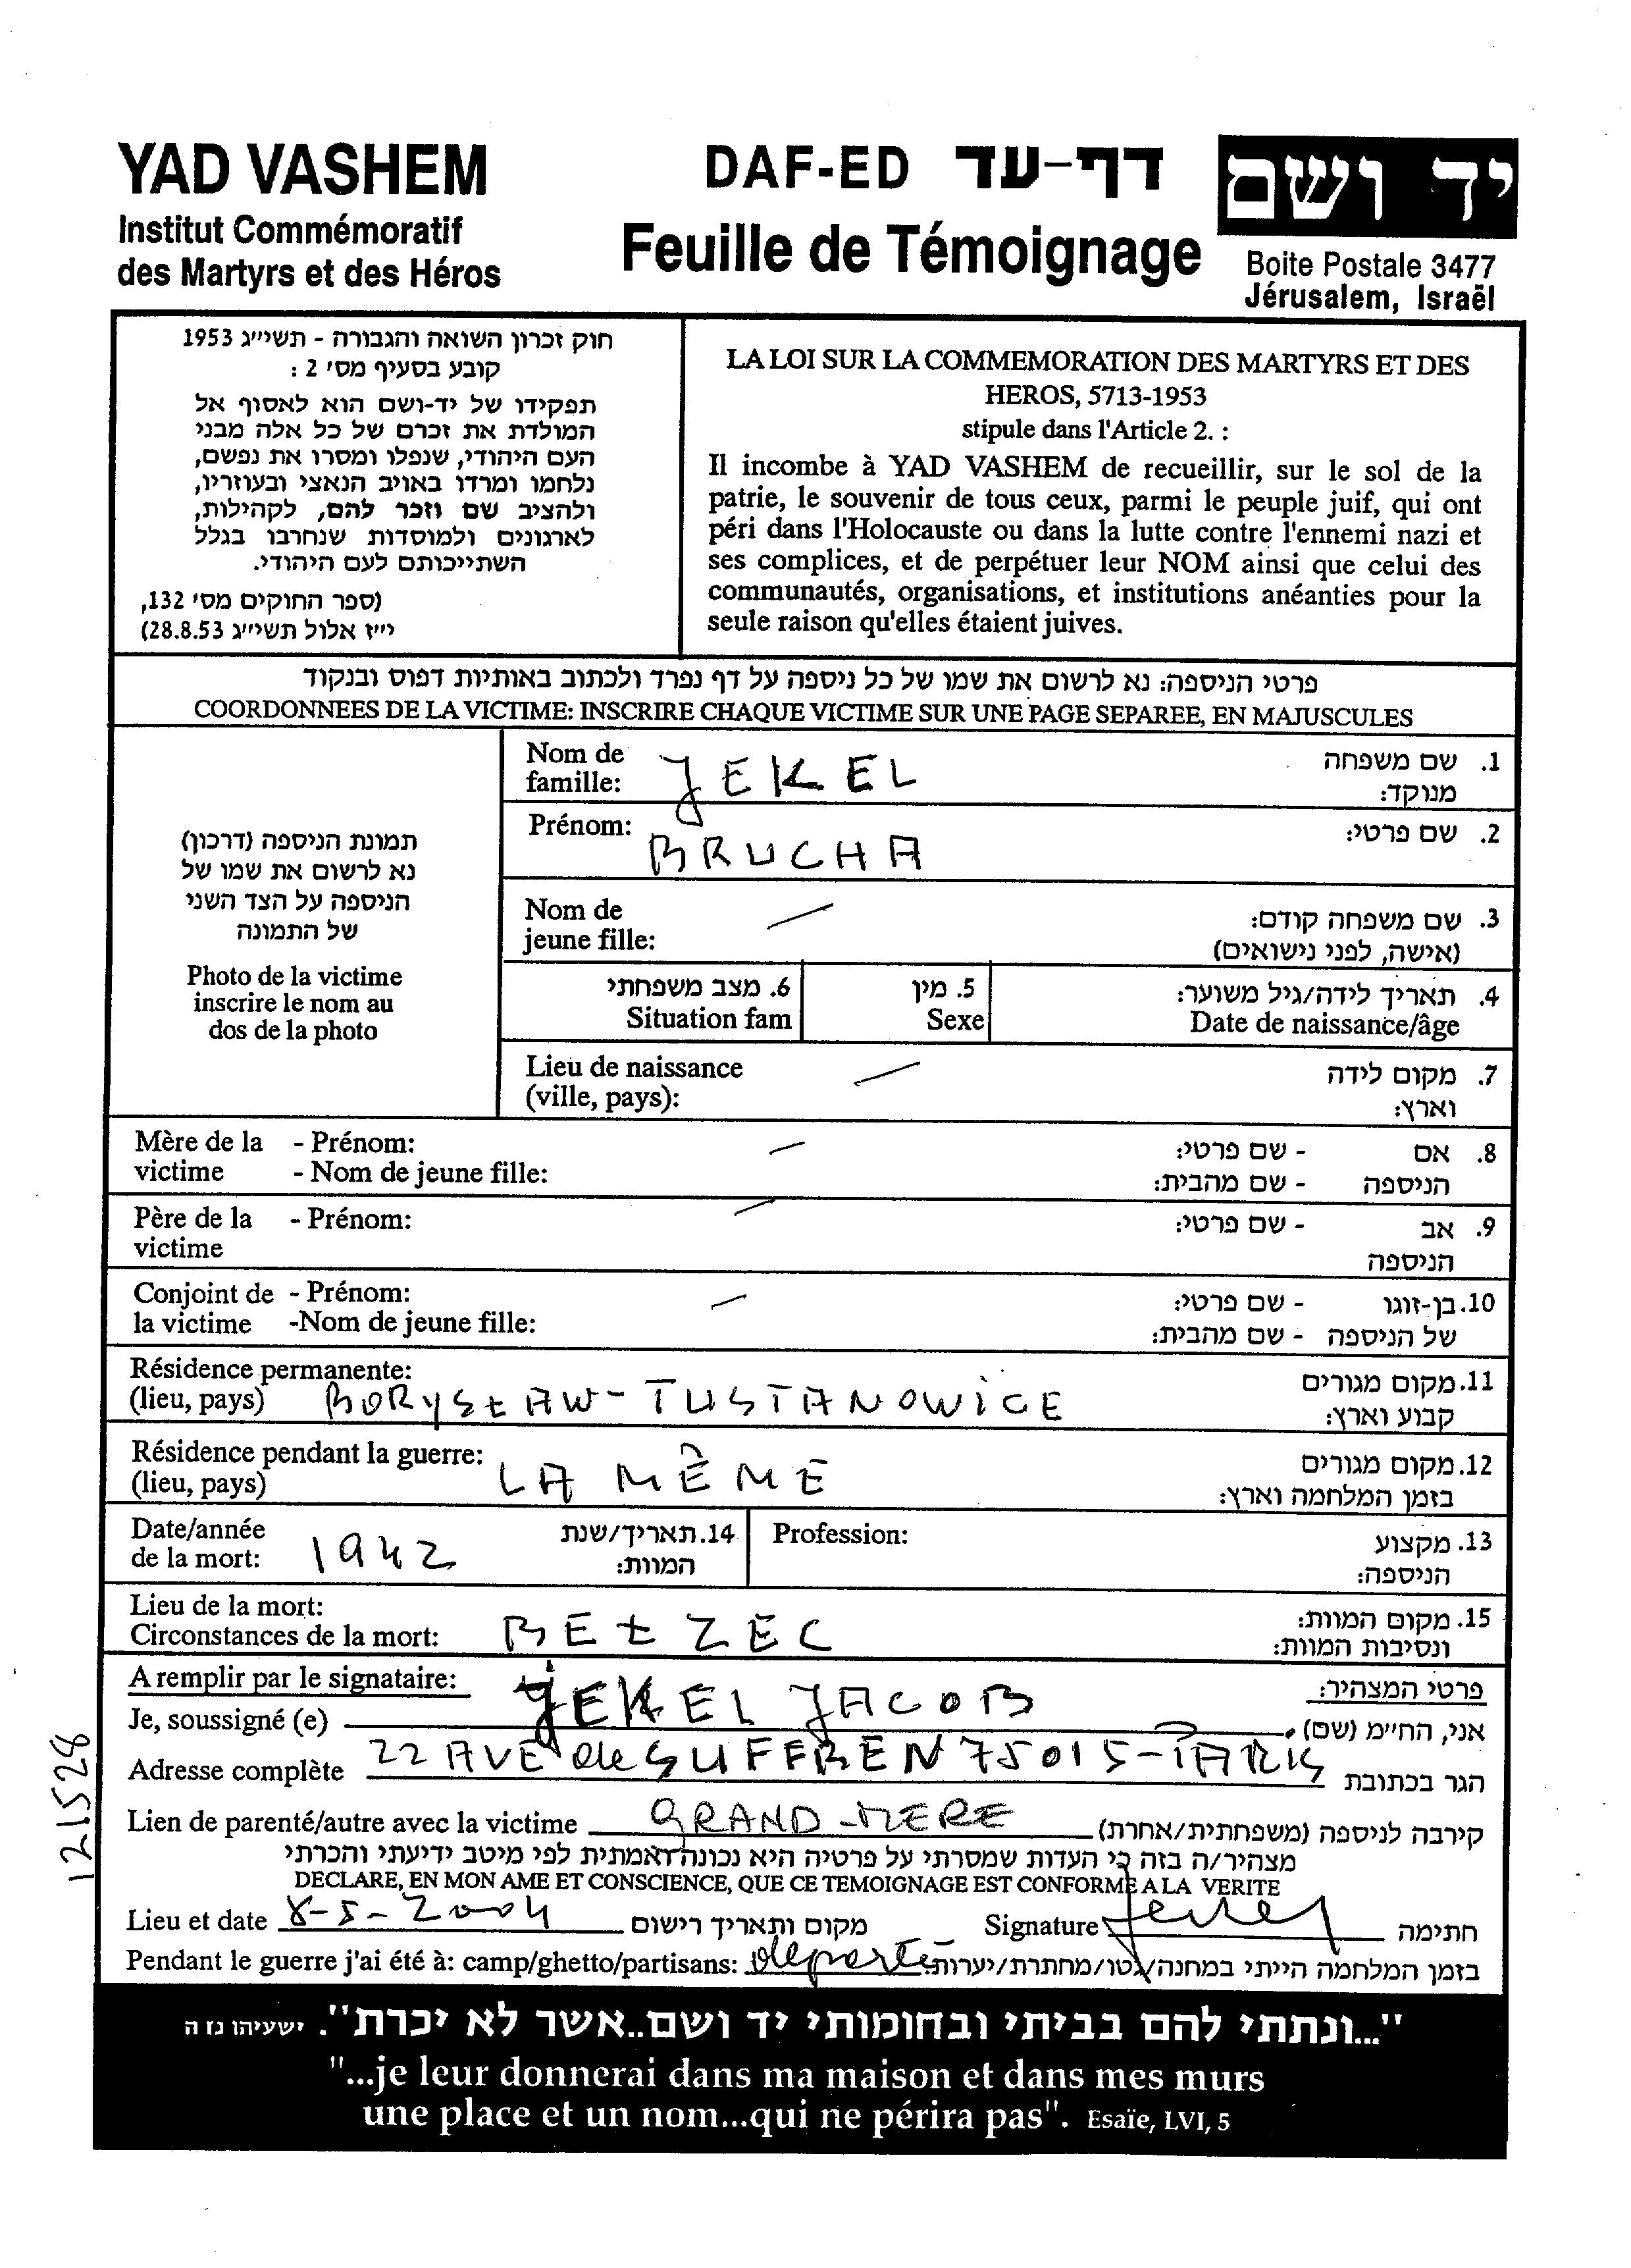 YAD VASHEM
Institut Commémoratif
des Martyrs et des Héros
DAF-ED דף-עד
Feuille de Témoignage
יד ושם
Boite Postale 3477
Jérusalem, Israël
חוק זכרון השואה והגבורה - תשי"ג 1953
קובע בסעיף מס' 2 :
תפקידו של יד-ושם הוא לאסוף אל
המולדת את זכרם של כל אלה מבני
העם היהודי, שנפלו ומסרו את נפשם,
נלחמו ומרדו באויב הנאצי ובעוזריו,
ולהציב שם וזכר להם, לקהילות,
לארגונים ולמוסדות שנחרבו בגלל
השתייכותם לעם היהודי.
(ספר החוקים מס' 132,
י"ז אלול תשי"ג 28.8.53)
LA LOI SUR LA COMMEMORATION DES MARTYRS ET DES
HEROS, 5713-1953
stipule dans l'Article 2. :
Il incombe à YAD VASHEM de recueillir, sur le sol de la
patrie, le souvenir de tous ceux, parmi le peuple juif, qui ont
péri dans l'Holocauste ou dans la lutte contre l'ennemi nazi et
ses complices, et de perpétuer leur NOM ainsi que celui des
communautés, organisations, et institutions anéanties pour la
seule raison qu'elles étaient juives.
פרטי הניספה: נא לרשום את שמו של כל ניספה על דף נפרד ולכתוב באותיות דפוס ובנקוד
COORDONNEES DE LA VICTIME: INSCRIRE CHAQUE VICTIME SUR UNE PAGE SEPAREE, EN MAJUSCULES
תמונת הניספה (דרכון)
נא לרשום את שמו של
הניספה על הצד השני
של התמונה
Photo de la victime
inscrire le nom au
dos de la photo
Nom de JEKEL 1. שם משפחה
famille: מנוקד:
Prénom: BRUCHA 2. שם פרטי:
Nom de 3. שם משפחה קודם:
jeune fille: (אישה, לפני נישואים)
6. מצב משפחתי 5. מין 4. תאריך לידה/גיל משוער:
Situation fam Sexe Date de naissance/âge
Lieu de naissance 7. מקום לידה
(ville, pays): וארץ:
Mère de la - Prénom: - שם פרטי: 8. אם
victime - Nom de jeune fille: - שם מהבית: הניספה
Père de la - Prénom: - שם פרטי: 9. אב
victime הניספה
Conjoint de - Prénom: - שם פרטי: 10. בן-זוגו
la victime -Nom de jeune fille: - שם מהבית: של הניספה
Résidence permanente: 11. מקום מגורים
(lieu, pays) BORYSŁAW - TUSTANOWICE קבוע וארץ:
Résidence pendant la guerre: LA MÊME 12. מקום מגורים
(lieu, pays) בזמן המלחמה וארץ:
Date/année 1942 14. תאריך/שנת Profession: 13. מקצוע
de la mort: המוות: הניספה:
Lieu de la mort: 15. מקום המוות:
Circonstances de la mort: BEŁZEC ונסיבות המוות:
A remplir par le signataire: פרטי המצהיר:
Je, soussigné (e) JEKEL JACOB אני, החי"מ (שם)
Adresse complète 22 AVE de SUFFREN 75015 - PARIS הגר בכתובת
Lien de parenté/autre avec la victime GRAND-MERE קירבה לניספה (משפחתית/אחרת)
מצהיר/ה בזה כי העדות שמסרתי על פרטיה היא נכונה ואמתית לפי מיטב ידיעתי והכרתי
DECLARE, EN MON AME ET CONSCIENCE, QUE CE TEMOIGNAGE EST CONFORME A LA VERITE
Lieu et date 8-5-2004 מקום ותאריך רישום Signature Jekel חתימה
Pendant le guerre j'ai été à: camp/ghetto/partisans: déporté בזמן המלחמה הייתי במחנה/גטו/מחתרת/יערות:
121528
"...ונתתי להם בביתי ובחומותי יד ושם..אשר לא יכרת". ישעיהו נז ה
"...je leur donnerai dans ma maison et dans mes murs
une place et un nom...qui ne périra pas". Esaïe, LVI, 5